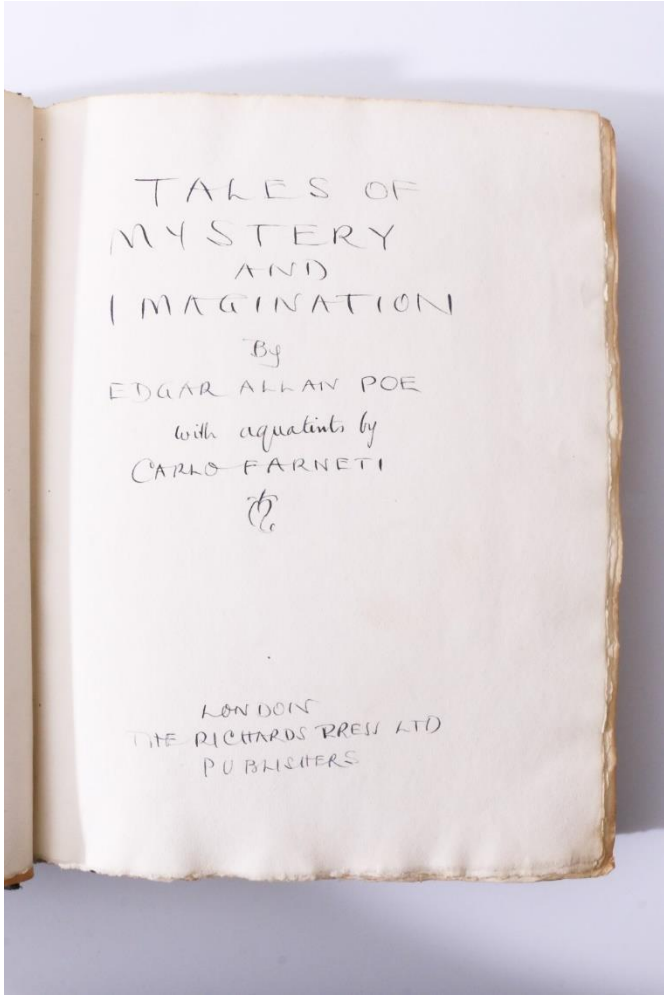 TALES OF
MYSTERY
AND
IMAGINATION
By
EDGAR ALLAN POE
with aquatints by
CARLO FARNETI
LONDON
THE RICHARDS PRESS LTD
PUBLISHERS